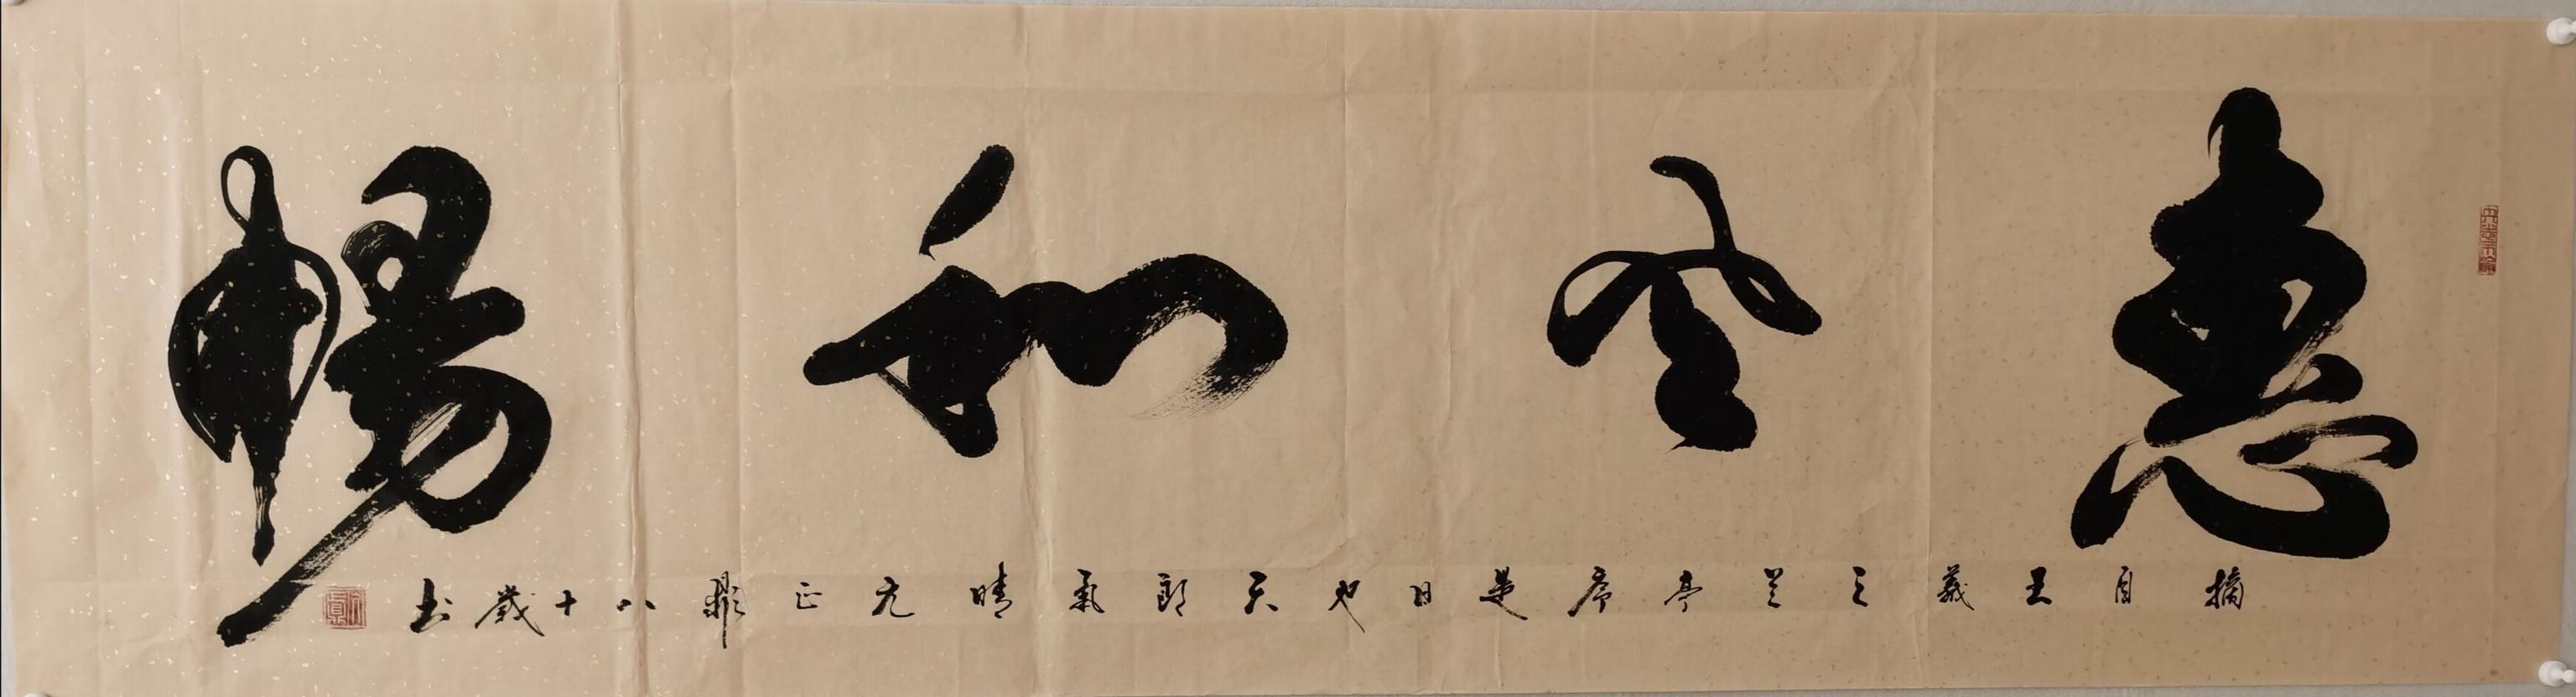 惠风和暢
摘自王羲之兰亭序是日也天朗氣晴元正鼎八十歲书